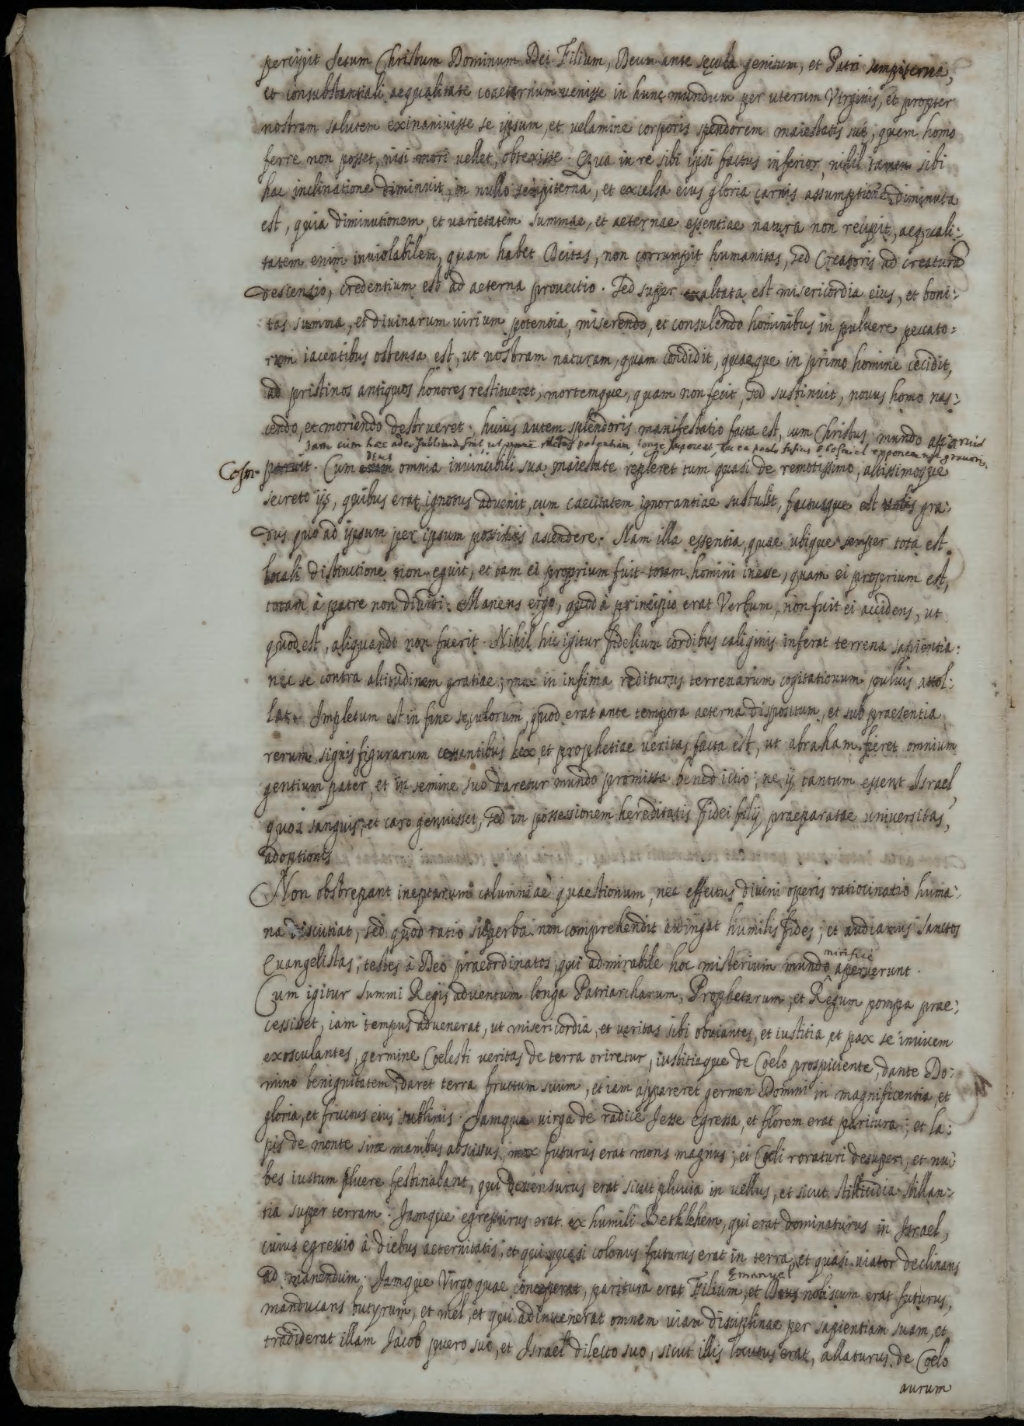 percipit Iesum Christum Dominum Dei Filium, Deum ante secula genitum, et Patri sempiterna,
et consubstantiali aequalitate coaeternum venisse in hunc mundum per uterum Virginis, et propter
nostram salutem exinanivisse se ipsum, et velamine corporis splendorem maiestatis suę, quem homo
ferre non posset, nisi mori vellet, obtexisse. Qua in re sibi ipsi factus inferior, nihil tamen sibi
hac inclinatione diminuit, in nullo sempiterna, et excelsa eius gloria carnis assumptione diminuta
est, quia diminutionem, et varietatem summae, et aeternae essentiae natura non recipit, aequali:
tatem enim inviolabilem, quam habet Deitas, non corrumpit humanitas, sed Creatoris ad creaturã
descensio, credentium est ad aeterna provectio. Sed super exaltata est misericordia eius, et boni:
tas summa, et divinarum virium potentia, miserendo, et consulendo hominibus in pulvere peccato:
rum iacentibus ostensa est, ut nostram naturam, quam condidit, quaeque in primo homine cecidit,
ad pristinos antiquos honores restitueret, mortemque, quam non fecit, sed sustinuit, novus homo nas:
cendo, et moriendo destrueret. huius autem splendoris manifestatio facta est, cum Christus mundo
Iam cum hoc
Cum Deus omnia invincibili sua maiestate repleret tum quasi de remotissimo, altissimoque
secreto ijs, quibus erat ignotus advenit, cum caecitatem ignorantiae sustulit, factusque est nobis gra:
dus quo ad ipsum per ipsum possimus ascendere. Nam illa essentia, quae ubique semper tota est
locali distinctione non eguit, et tam ei proprium fuit totam homini inesse, quam ei proprium est,
totam à patre non dividi. Manens ergo, quod à principio erat Verbum, non fuit ei accidens, ut
quod est, aliquando non fuerit. Nihil hic igitur fidelium cordibus caliginis inferat terrena sapientia:
nec se contra altitudinem gratiae, mox in infima rediturus terrenarum cogitationum pulvis attol:
lat. Impletum est in fine seculorum, quod erat ante tempora aeterna dispositum, et sub praesentia
rerum, signis figurarum cessantibus lex, et prophetiae veritas facta est, ut abraham fieret omnium
gentium pater, et in semine suo daretur mundo promissa benedictio; ne ij tantum essent Israel,
quos sanguis, et caro genuisset, sed in possessionem hereditatis fidei filij praeparatae universitas,
adoptionis
Non obstrepant ineptarum calumniae quaestionum, nec effectus divini operis ratiocinatio huma:
na discutiat, sed quod ratio superba non comprehendit attingat humilis fides, et audiamus Sanctos
Evangelistas, testes à Deo praeordinatos, qui admirabile hoc misterium mundo mirificè aperuerunt.
Cum igitur summi Regis adventum longa Patriarcharum, Prophetarum, et Regum pompa prae:
cessisset, iam tempus advenerat, ut misericordia, et veritas sibi obviantes, et iustitia et pax se invicem
exosculantes, germine Coelesti veritas de terra oriretur, iustitiaque de Coelo prospiciente, dante Do:
mino benignitatem, daret terra fructum suum, et iam appareret germen Domini in magnificentia, et
gloria, et fructus eius sublimis. Iamque virga de radice Iesse egressa, et florem erat paritura; et la:
pis de monte sine manibus abscissus, mox futurus erat mons magnus; ei Coeli roraturi desuper, et nu:
bes iustum pluere festinabant, qui descensurus erat sicut pluvia in vellus, et sicut stillicidia stillan:
tia super terram. Iamque egressurus erat ex humili Bethlehem, qui erat dominaturus in Israel,
cuius egressio à diebus aeternitatis, et qui quasi colonus futurus erat in terra, et quasi viator declinans
ad manendum. Iamque Virgo quae conceperat, paritura erat Filium, et Emanuel nobiscum erat futurus,
manducans butyrum, et mel, et qui adinvenerat omnem viam disciplinae per sapientiam suam, et
tradiderat illam Iacob puero suo, et Israel dilecto suo, sicut illis locutus erat, allaturus de Coelo
aurum